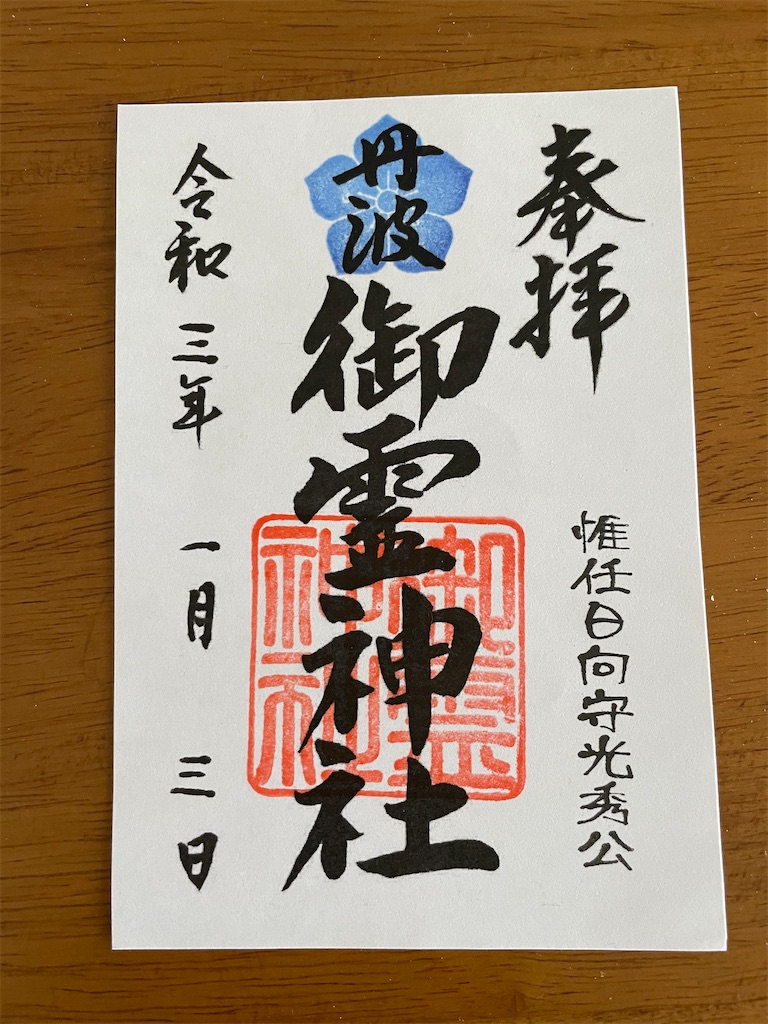 奉拝
惟任日向守光秀公
丹波
御霊神社
御霊神社
令和三年一月三日